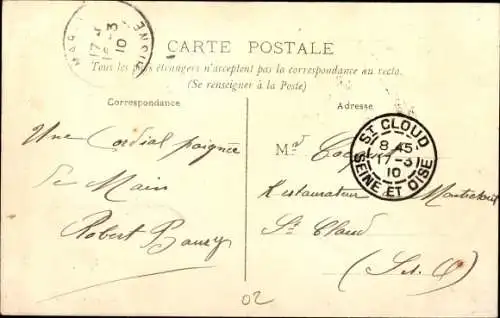 CARTE POSTALE
Tous les pays étrangers n'acceptent pas la correspondance au recto.
(Se renseigner à la Poste)
Correspondance
Adresse
Une Cordial poignée
de Main
Robert
Restaurateur
St Cloud
(S. et O.)
ST CLOUD
8 45
17-3
10
SEINE ET OISE
17-3
10
02